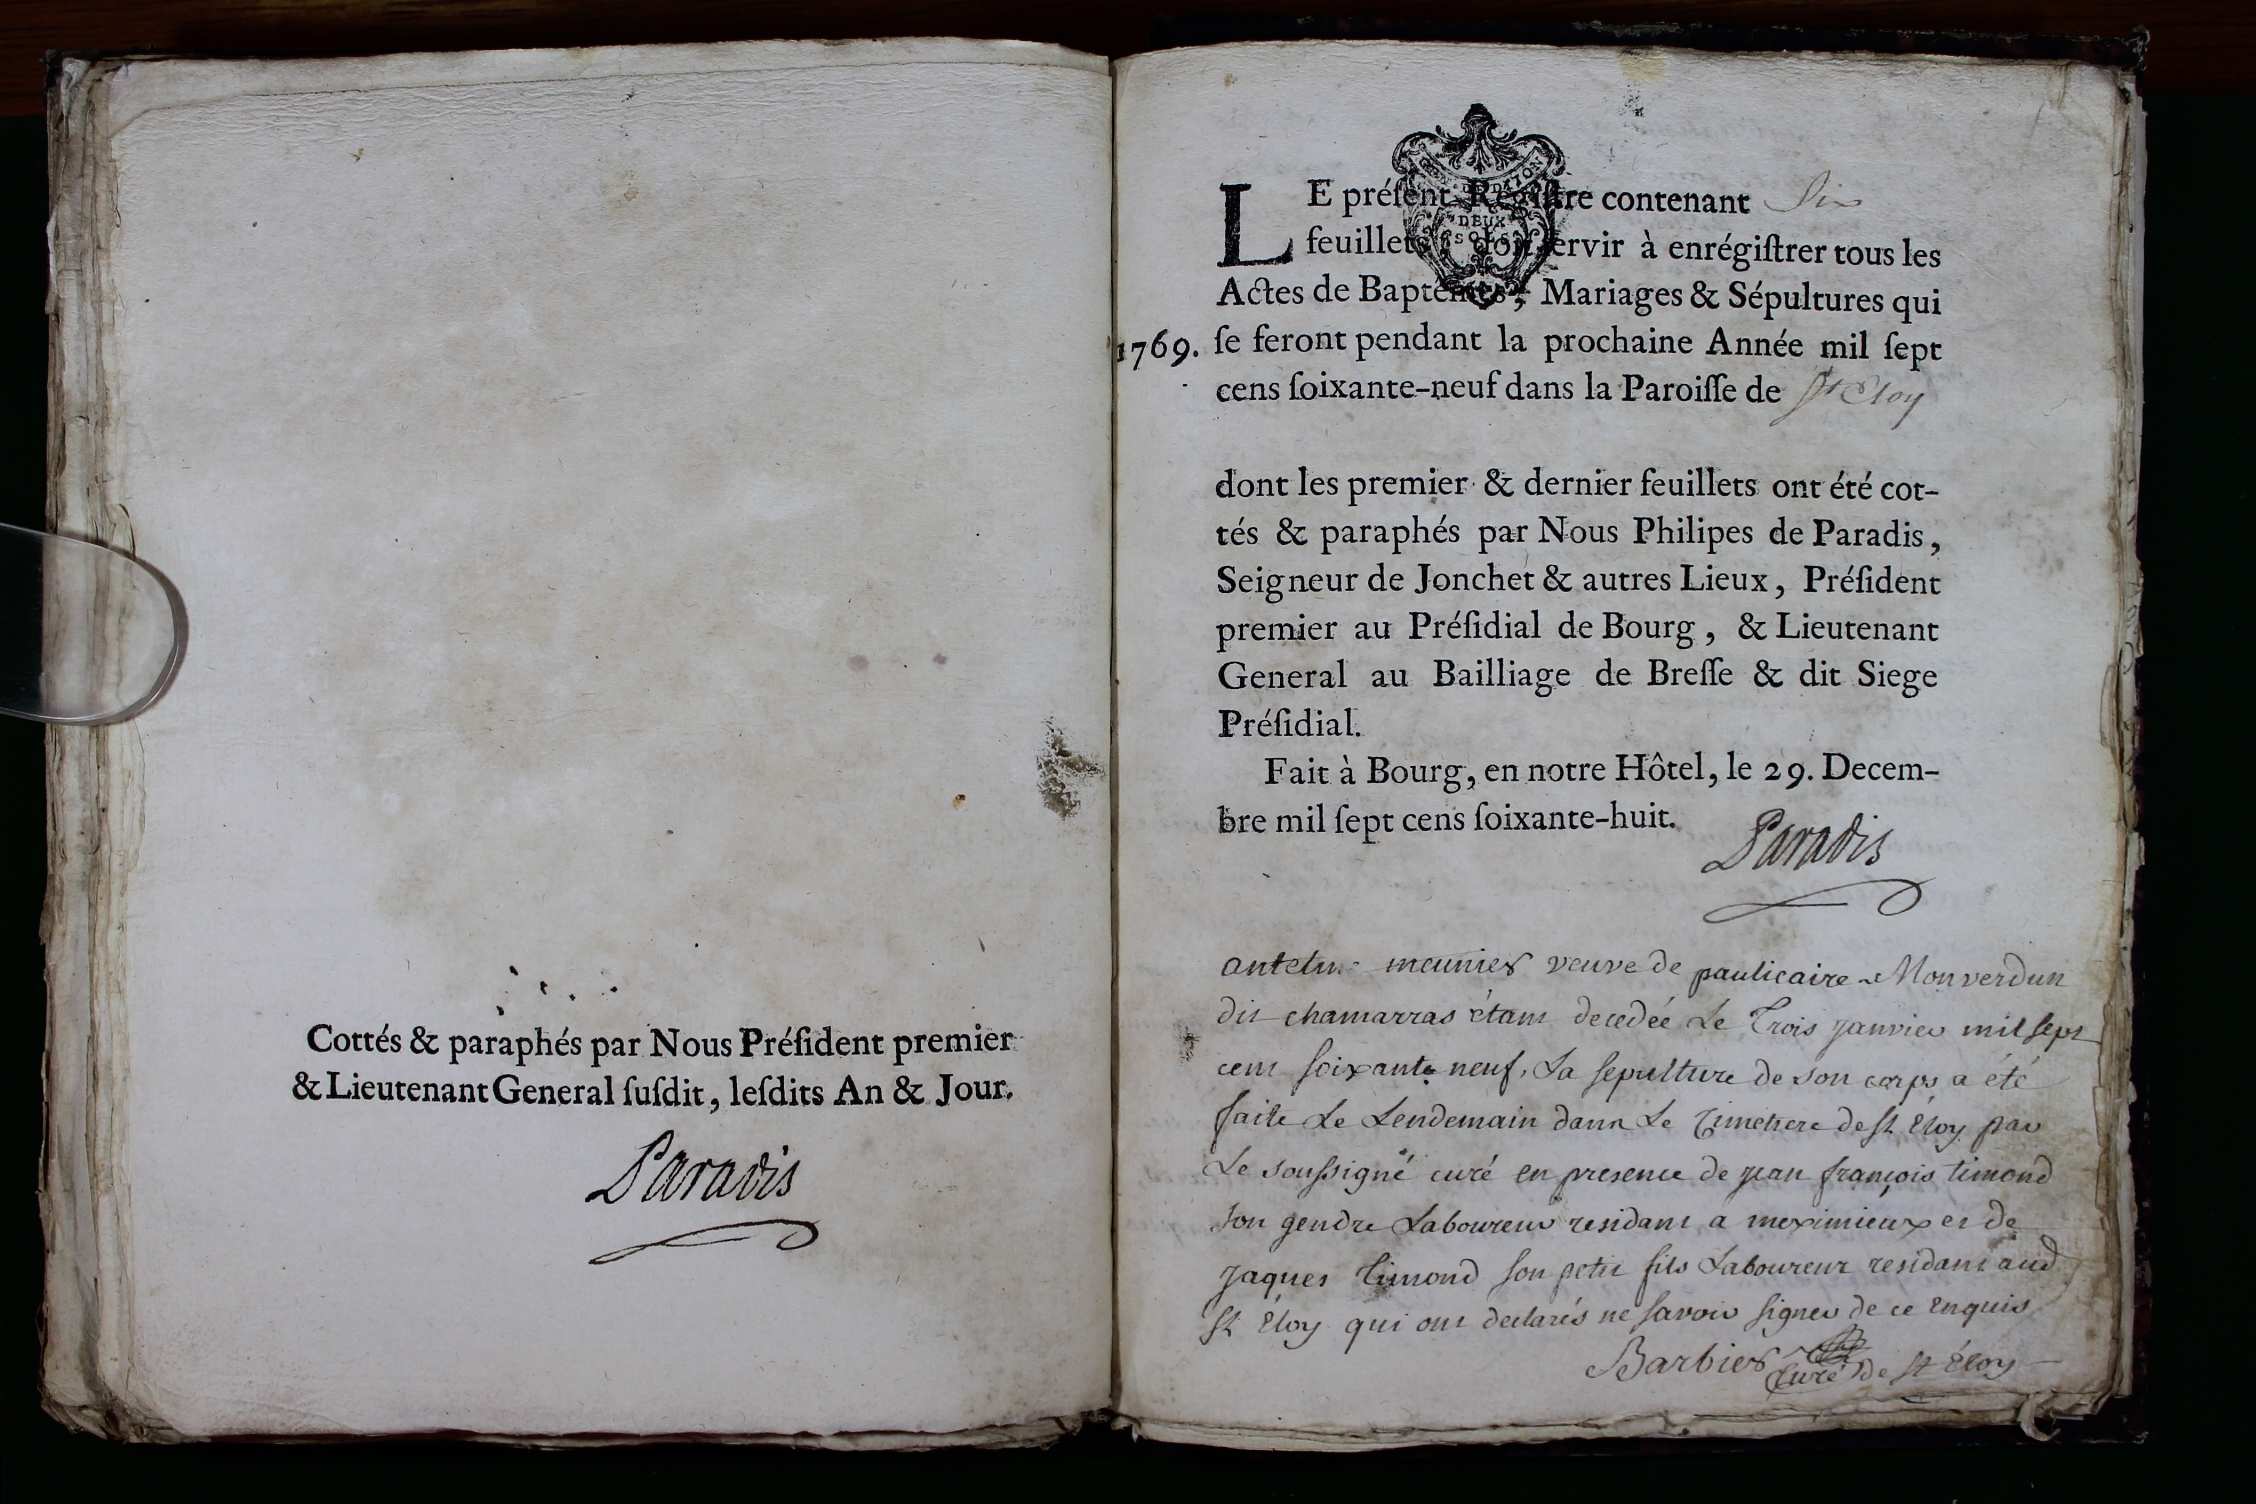 Cottés & paraphés par Nous Préſident premier
& Lieutenant General ſuſdit, leſdits An & Jour.
Paradis
GEN. DE DIJON
DEUX
SOLS
LE préſent Regiſtre contenant Six
feuillets doit ſervir à enrégiſtrer tous les
Actes de Baptêmes, Mariages & Sépultures qui
1769. ſe feront pendant la prochaine Année mil ſept
cens ſoixante-neuf dans la Paroiſſe de St Eloy
dont les premier & dernier feuillets ont été cot-
tés & paraphés par Nous Philipes de Paradis,
Seigneur de Jonchet & autres Lieux, Préſident
premier au Préſidial de Bourg, & Lieutenant
General au Bailliage de Breſſe & dit Siege
Préſidial.
Fait à Bourg, en notre Hôtel, le 29. Decem-
bre mil ſept cens ſoixante-huit.
Paradis
meunier veuve de paulicaire Monverdun
dit chamarras étant decedée Le Trois janvier mil sept
cent soixante neuf, La sepulture de son corps a été
faite Le Lendemain dans Le Cimetiere de St Eloy par
Le soussigné curé en presence de jean françois timond
son gendre Laboureur residant a meximieux et de
jaques timond son petit fils Laboureur residant aud
St Eloy qui ont declarés ne savoir signer de ce enquis
Barbier Curé de St Eloy